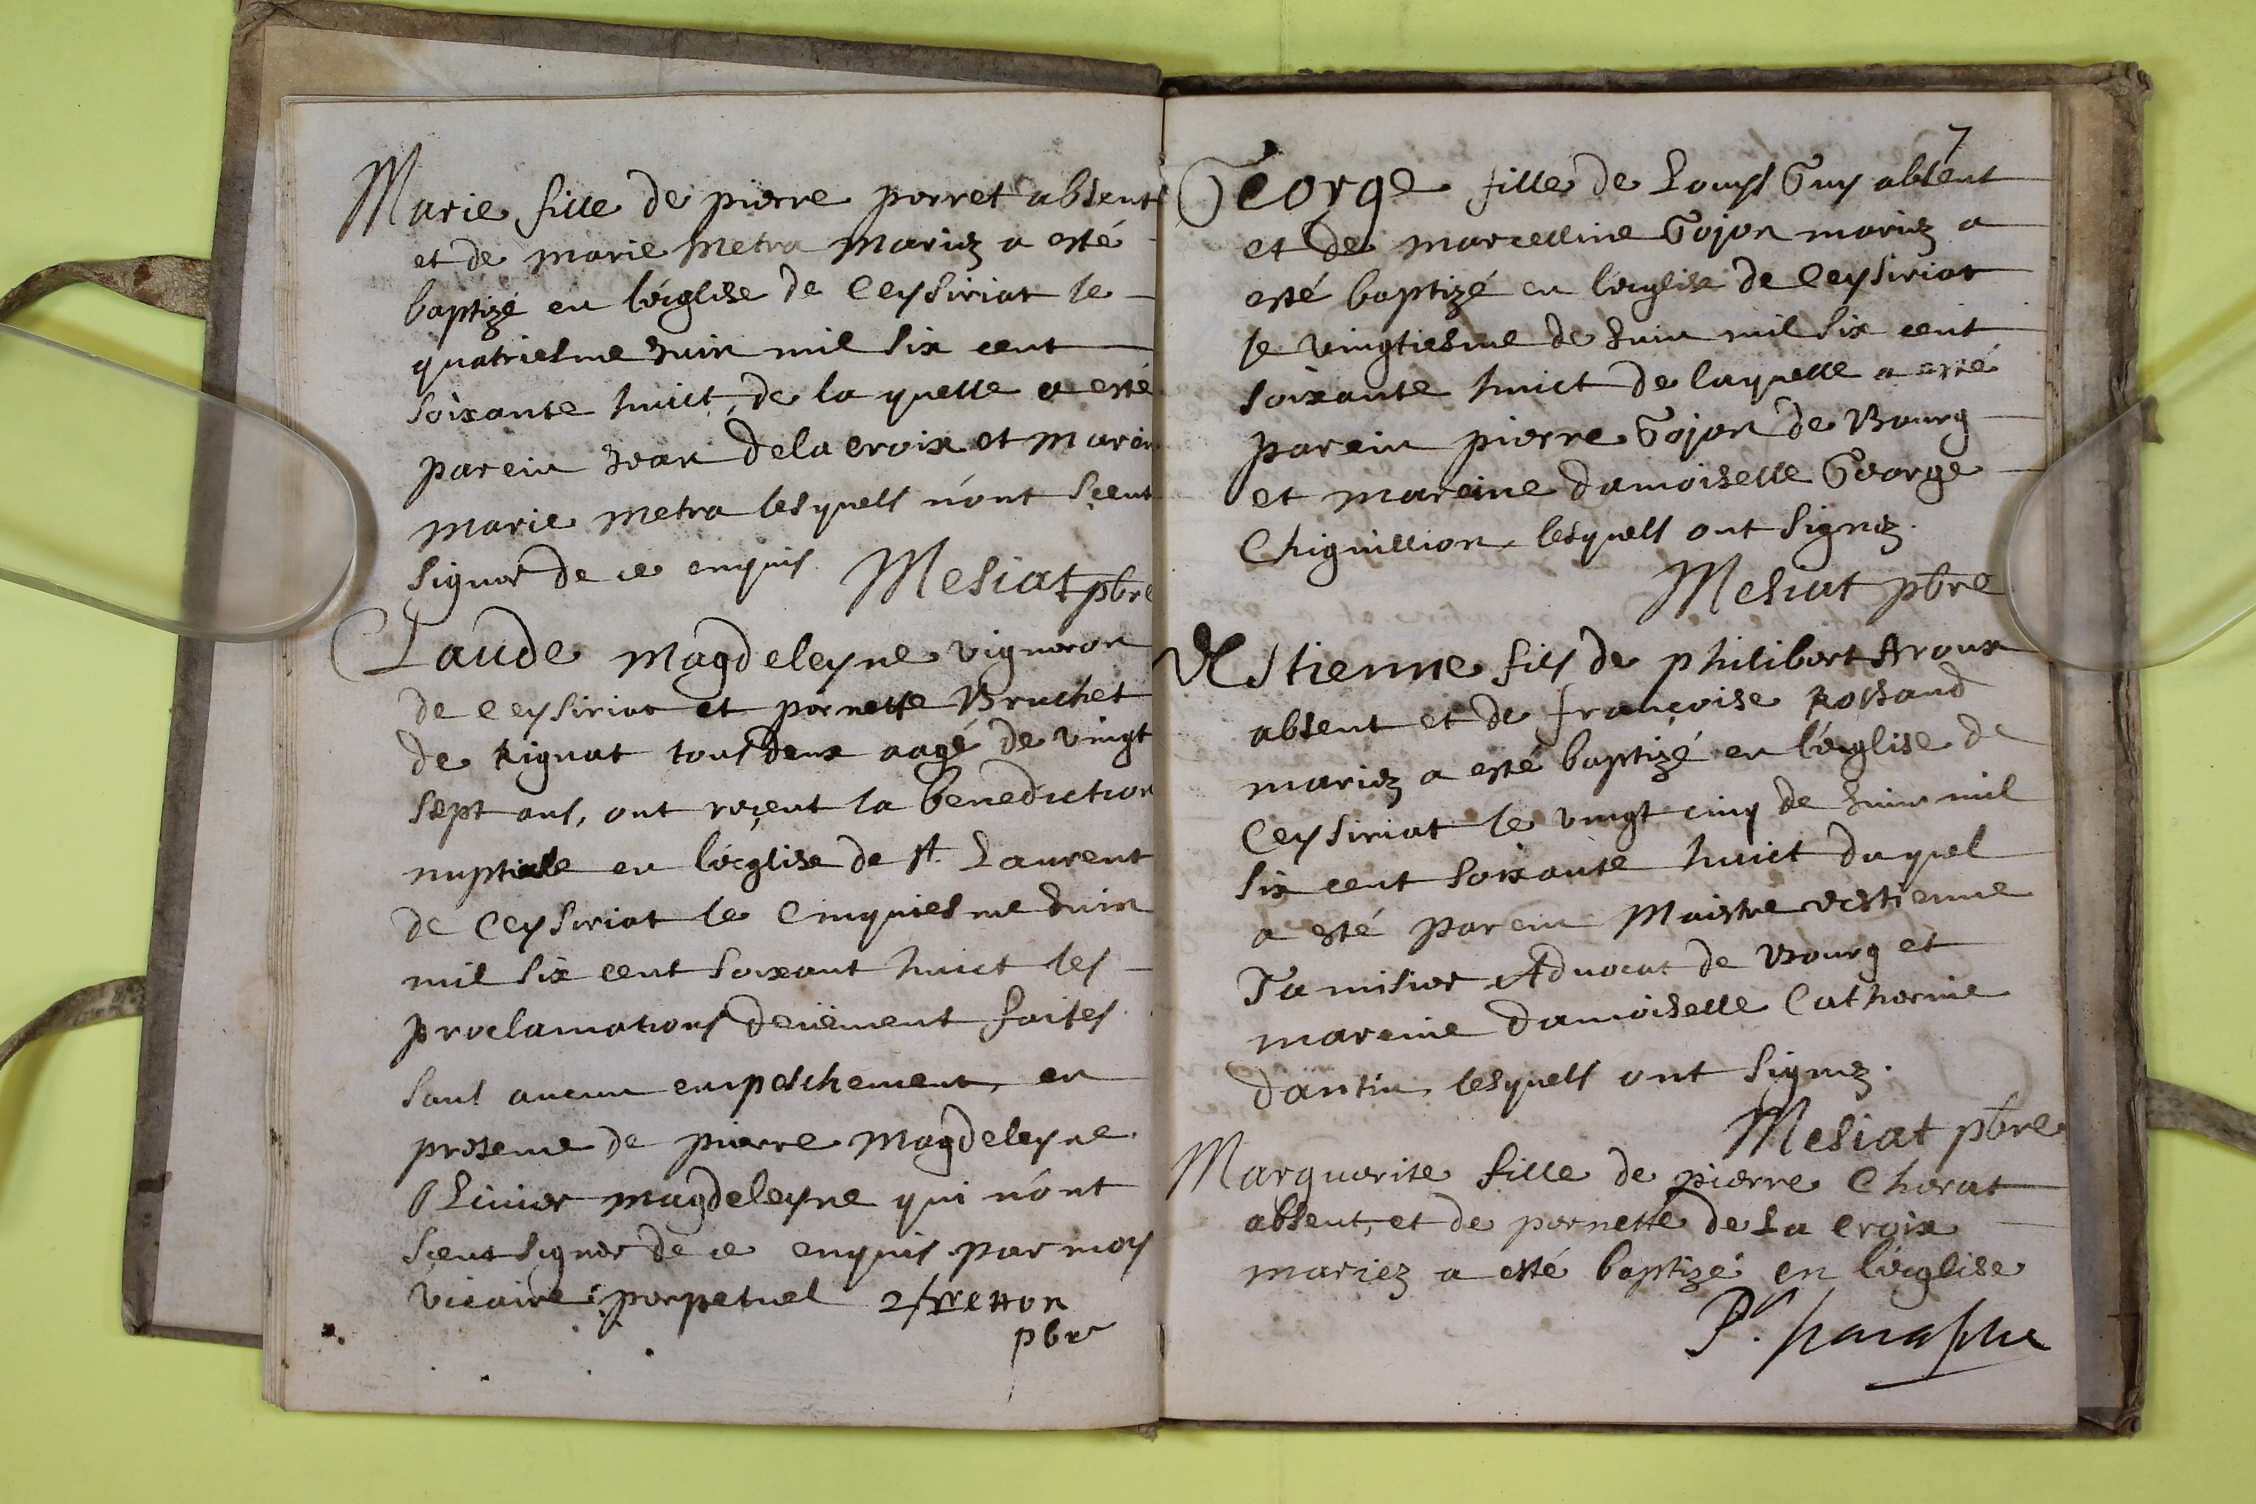 Marie fille de pierre perret absent
et de marie Metra mariez a esté
baptizé en l'église de Ceysiriat le
quatriesme Juin mil six cent
soixante huict, de la quelle a esté
parein Jean Dela croix et marein
marie metra lesquels n'ont sçeut
signer de ce enquis. Mesiat pbre
Claude Magdeleyne vigneron
de Ceysiriat et pernette Bruchet
de Rignat tous deux aagé de vingt
sept ans, ont reçeut la benediction
nuptiale en l'ecglise de st. Laurent
de Ceysiriat le Cinquiesme Juin
mil six cent soixant huict les
proclamations deüement faites
sans aucun empeschement, en
presence de pierre Magdeleyne
Olivier Magdeleyne qui n'ont
sçeut signer de ce enquis par moy
vicaire perpetuel
pbre
7
George fille de Louys Guy absent
et de marcelline Gojon mariez a
esté baptizé en l'ecglise de Ceysiriat
le vingtiesme de Juin mil six cent
soixante huict de laquelle a esté
parein pierre Gojon de Bourg
et mareine damoiselle George
Chiguillion lesquels ont signez.
Mesiat pbre
Estienne fils de philibert Aroux
absent et de françoise Rossand
mariez a esté baptizé en l'ecglise de
Ceysiriat le vingt cinq de Juin mil
six cent soixante huict duquel
a esté parein Maistre Estienne
Tamisier Advocat de Bourg et
mareine damoiselle Catherine
dantin lesquels ont signez.
Mesiat pbre
Marguerite fille de pierre Cherat
absent, et de pernette de La croix
mariez a esté baptizé en l'ecglise
Pr. paraphe